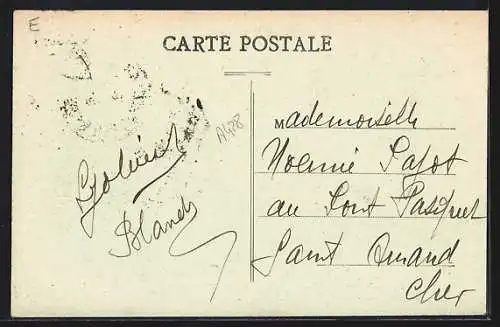 E
CARTE POSTALE
A488
Mademoiselle
Noemie Pajot
au Pont Pasquet
Saint Amand
Cher
Blanch